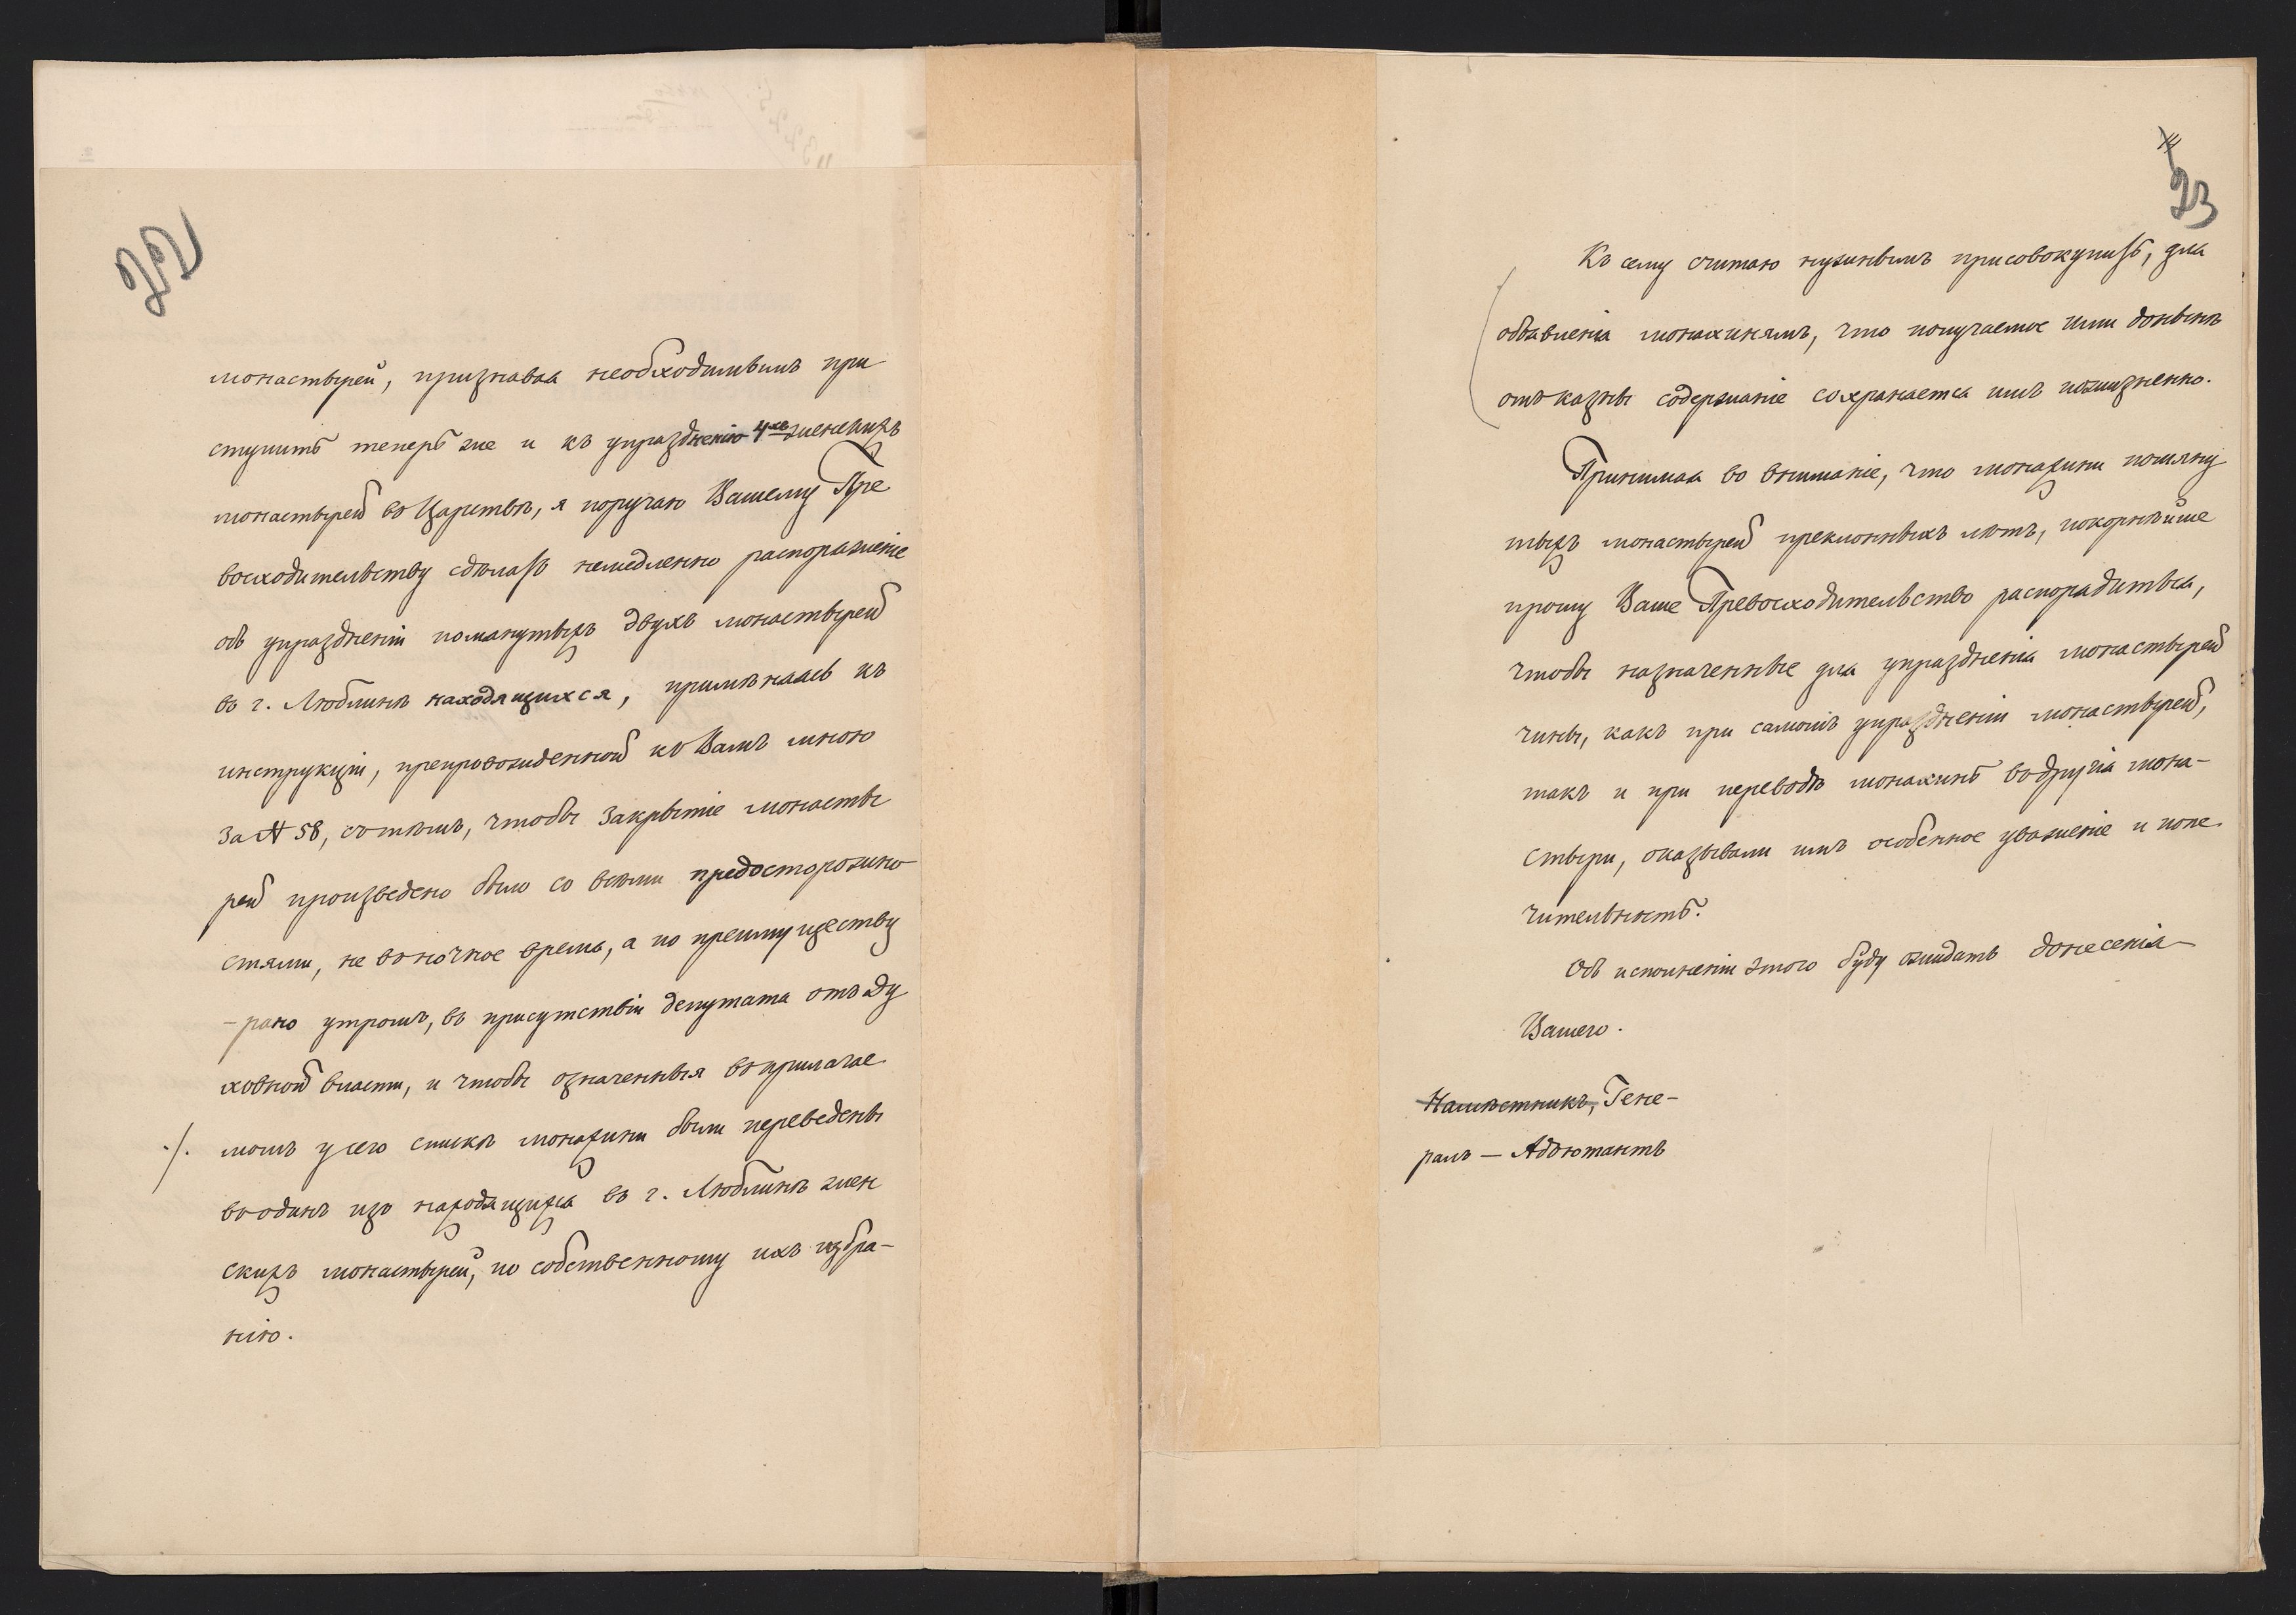 22
монастырей, признавая необходимымъ при
ступить теперь же и къ упраздненію 4хъ женскихъ
монастырей въ Царствѣ, я поручаю Вашему Пре
восходительству сдѣлать немедленно распоряженіе
объ упраздненіи помянутыхъ двухъ монастырей
въ г. Люблинѣ находящихся, примѣняясь къ
инструкціи, препровожденной къ Вамъ мною
за № 58, съ тѣмъ, чтобы закрытіе монасты
рей произведено было со всѣми предосторожно
стями, не въ ночное время, а по преимуществу
- рано утромъ, въ присутствіи депутата отъ ду
ховной власти, и чтобы означенныя въ прилагае
./. момъ у сего спискѣ монахини были переведены
въ одинъ изъ находящихся въ г. Люблинѣ жен
скихъ монастырей, по собственному ихъ избра-
нію.
23
Къ сему считаю нужнымъ присовокупить, для
объявленія монахинямъ, что получаемое ими донынѣ
отъ казны содержаніе сохраняется имъ пожизненно.
Принимая во вниманіе, что монахини помяну
тыхъ монастырей преклонныхъ лѣтъ, покорнѣйше
прошу Ваше Превосходительство распорядиться,
чтобы назначенные для упраздненія монастырей
чины, какъ при самомъ упраздненіи монастырей,
такъ и при переводѣ монахинь въ другія мона-
стыри, оказывали имъ особенное уваженіе и попе
чительность.
Объ исполненіи этого буду ожидать донесенія
Вашего.
Намѣстникъ, Гене-
ралъ — Адъютантъ